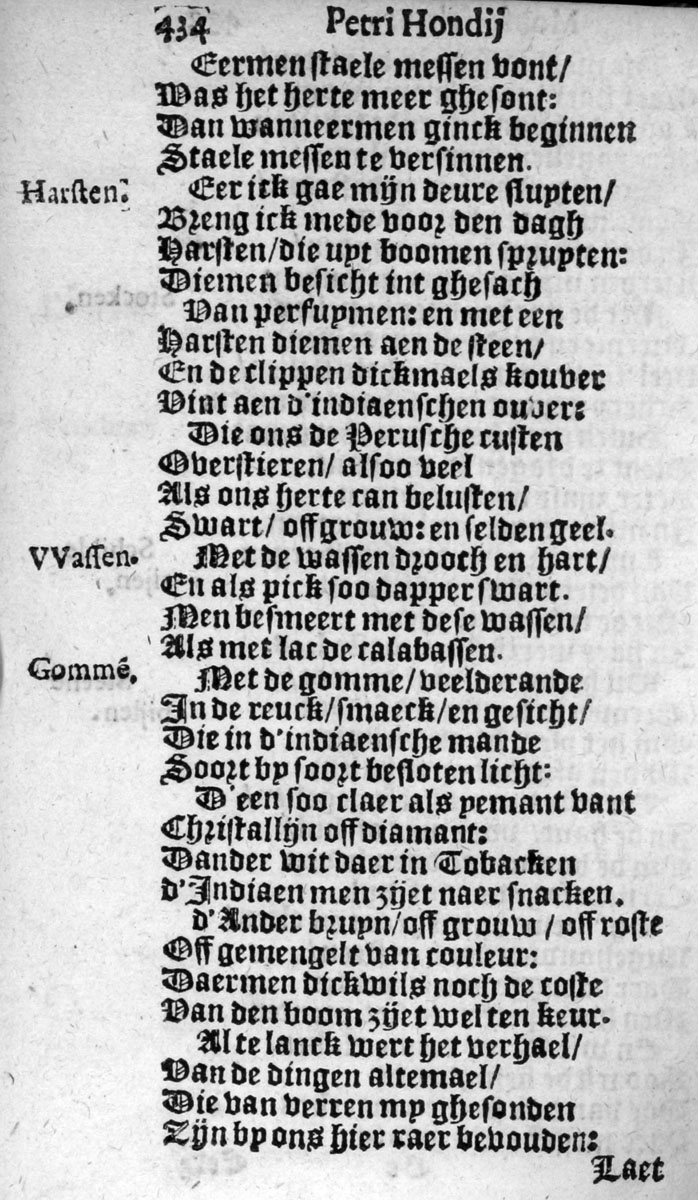 434 Petri Hondij
Eermen staele messen vont/
Was het herte meer ghesont:
Dan wanneermen ginck beginnen
Staele messen te versinnen.
Harsten. Eer ick gae mijn deure sluyten/
Breng ick mede voor den dagh
Harsten/die uyt boomen spruyten:
Diemen besicht int ghesach
Van perfuymen: en met een
Harsten diemen aen de steen/
En de clippen dickmaels kouver
Vint aen d'indiaenschen ouver:
Die ons de Perusche custen
Overstieren/ alsoo veel
Als ons herte can belusten/
Swart/ off grouw: en selden geel.
VVassen. Met de wassen drooch en hart/
En als pick soo dapper swart.
Men besmeert met dese wassen/
Als met lac de calabassen.
Gommē. Met de gomme/veelderande
In de reuck/smaeck/en gesicht/
Die in d'indiaensche mande
Soort by soort besloten licht:
D'een soo claer als yemant vant
Christallijn off diamant:
Dander wit daer in Tobacken
d'Indiaen men zijet naer snacken.
d'Ander bruyn/off grouw / off roste
Off gemengelt van couleur:
Daermen dickwils noch de coste
Van den boom zijet wel ten keur.
Al te lanck wert het verhael/
Van de dingen altemael/
Die van verren my ghesonden
Zijn by ons hier raer bevouden:
Laet